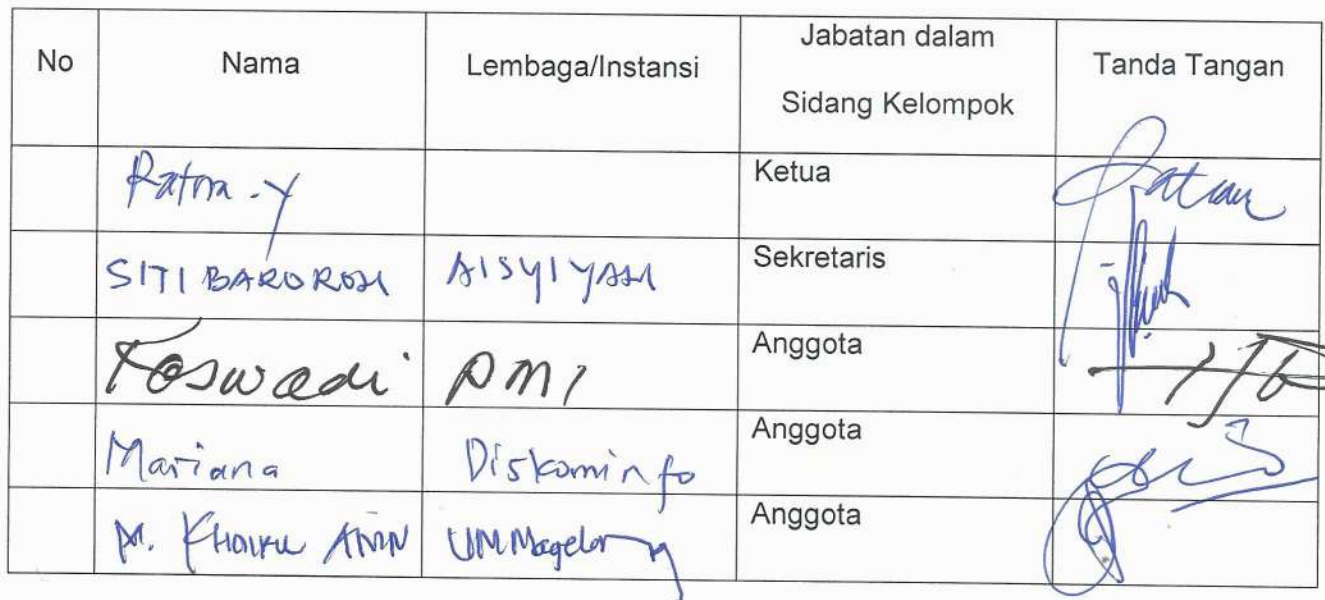 No Nama Lembaga/Instansi Jabatan dalam Sidang Kelompok Tanda Tangan
Ratna - Y Ketua
SITI BAROROH AISYIYAH Sekretaris
Koswadi PMI Anggota
Mariana Diskominfo Anggota
M. Khoirul Amin UM Magelang Anggota